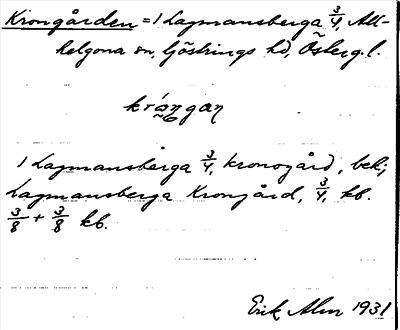 Krongården = 1 Lagmansberga 3/4, All-
helgona sn, Göstrings hd, Östergl.
1 Lagmansberga 3/4, kronogård, bek;
Lagmansberga Krongård, 3/4, kb.
3/8 + 3/8 kb.
Erik Alm 1931